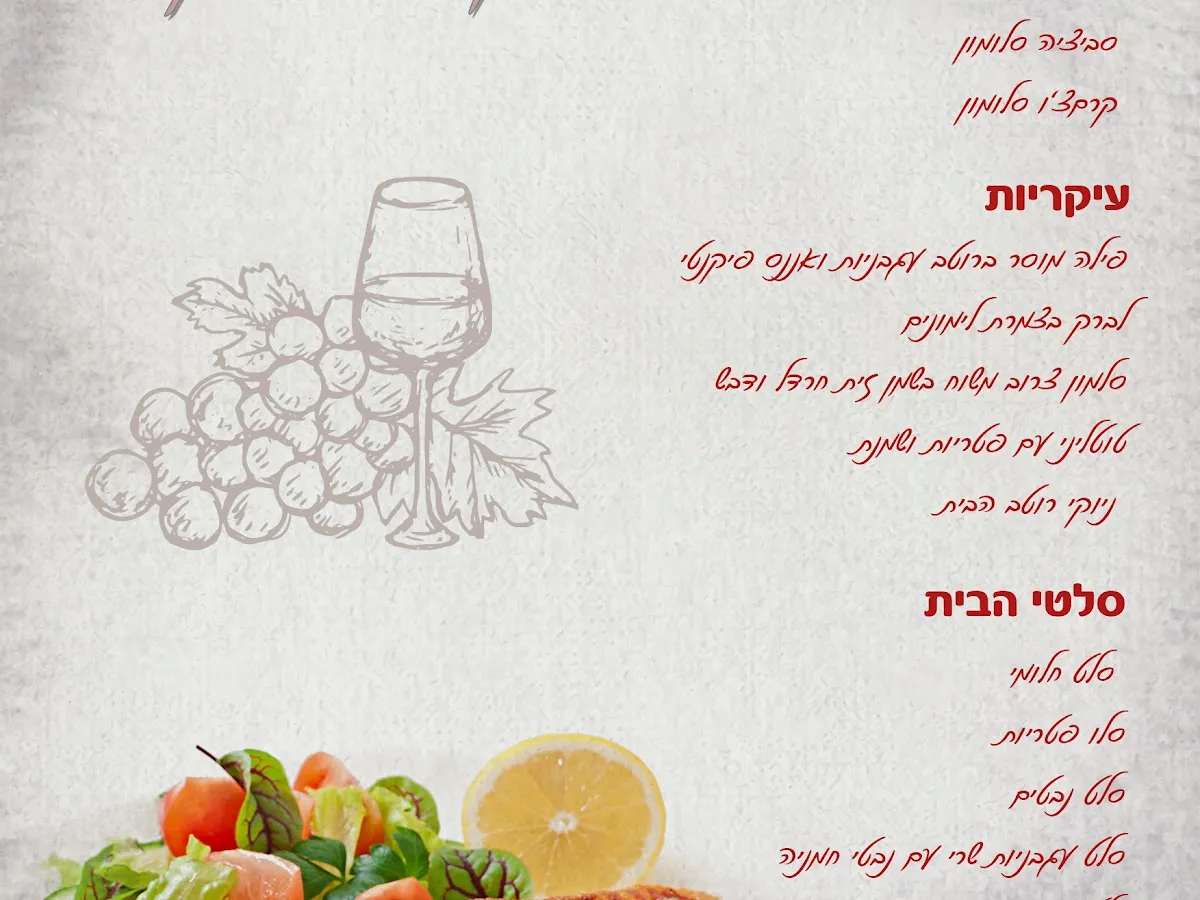 סביציה סלומון
קרפצ'ו סלומון
עיקריות
פילה מוסר ברוטב עגבניות ואננס פיקנטי
לברק בצמרת לימונים
סלמון צרוב משוח בשמן זית חרדל ודבש
טוטליני עם פטריות ושמנת
ניוקי רוטב הבית
סלטי הבית
סלט חלומי
סלו פטריות
סלט נבטים
סלט עגבניות שרי עם נבטי חמניה